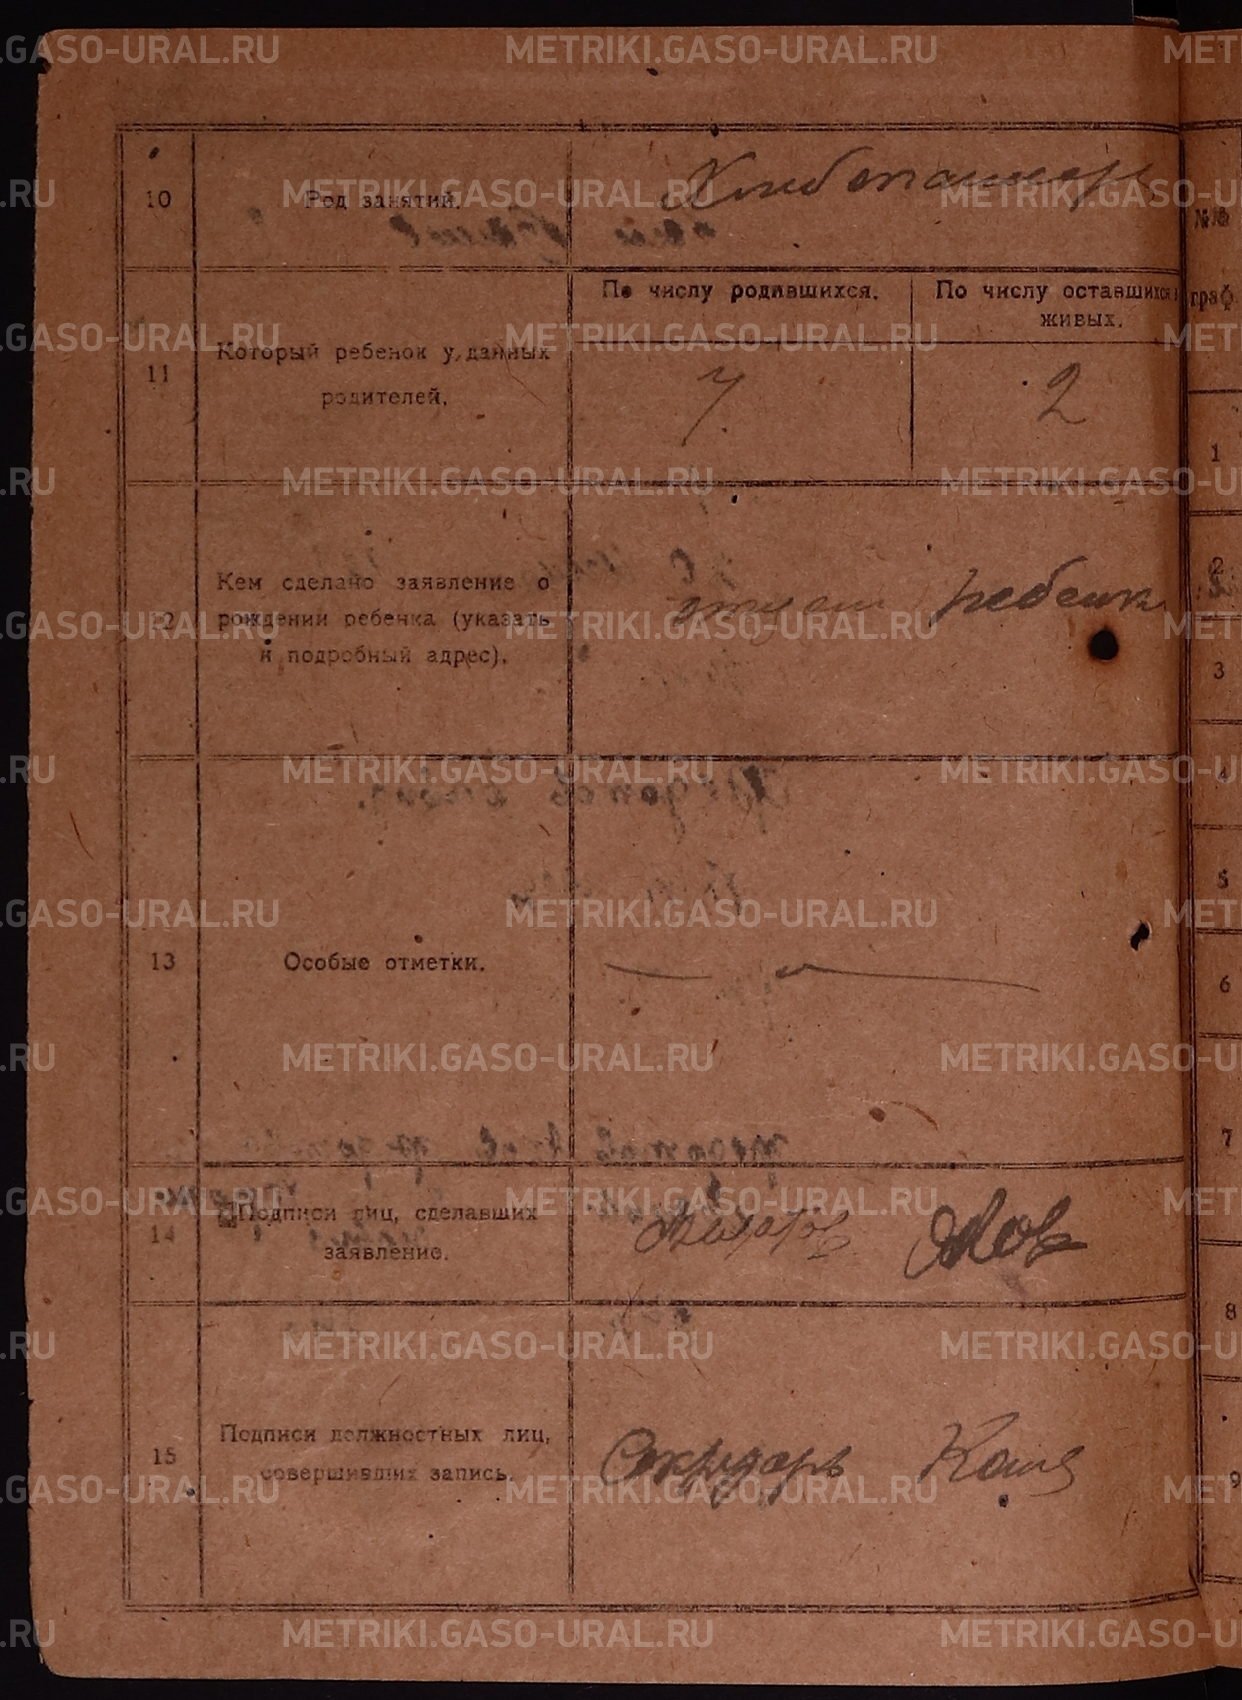 METRIKI.GASO-URAL.RU
10
Род занятий.
Хлебопашец
11
Который ребенок у данных
родителей.
По числу родившихся.
По числу оставшихся
живых.
7.
2
Кем сделано заявление о
рождении ребенка (указать
и подробный адрес).
отцом ребенка
13
Особые отметки.
14
Подписи лиц, сделавших
заявление.
15
Подписи должностных лиц,
совершивших запись.
Секретарь
№№
граф.
1
2
3
4
5
6
7
8
9